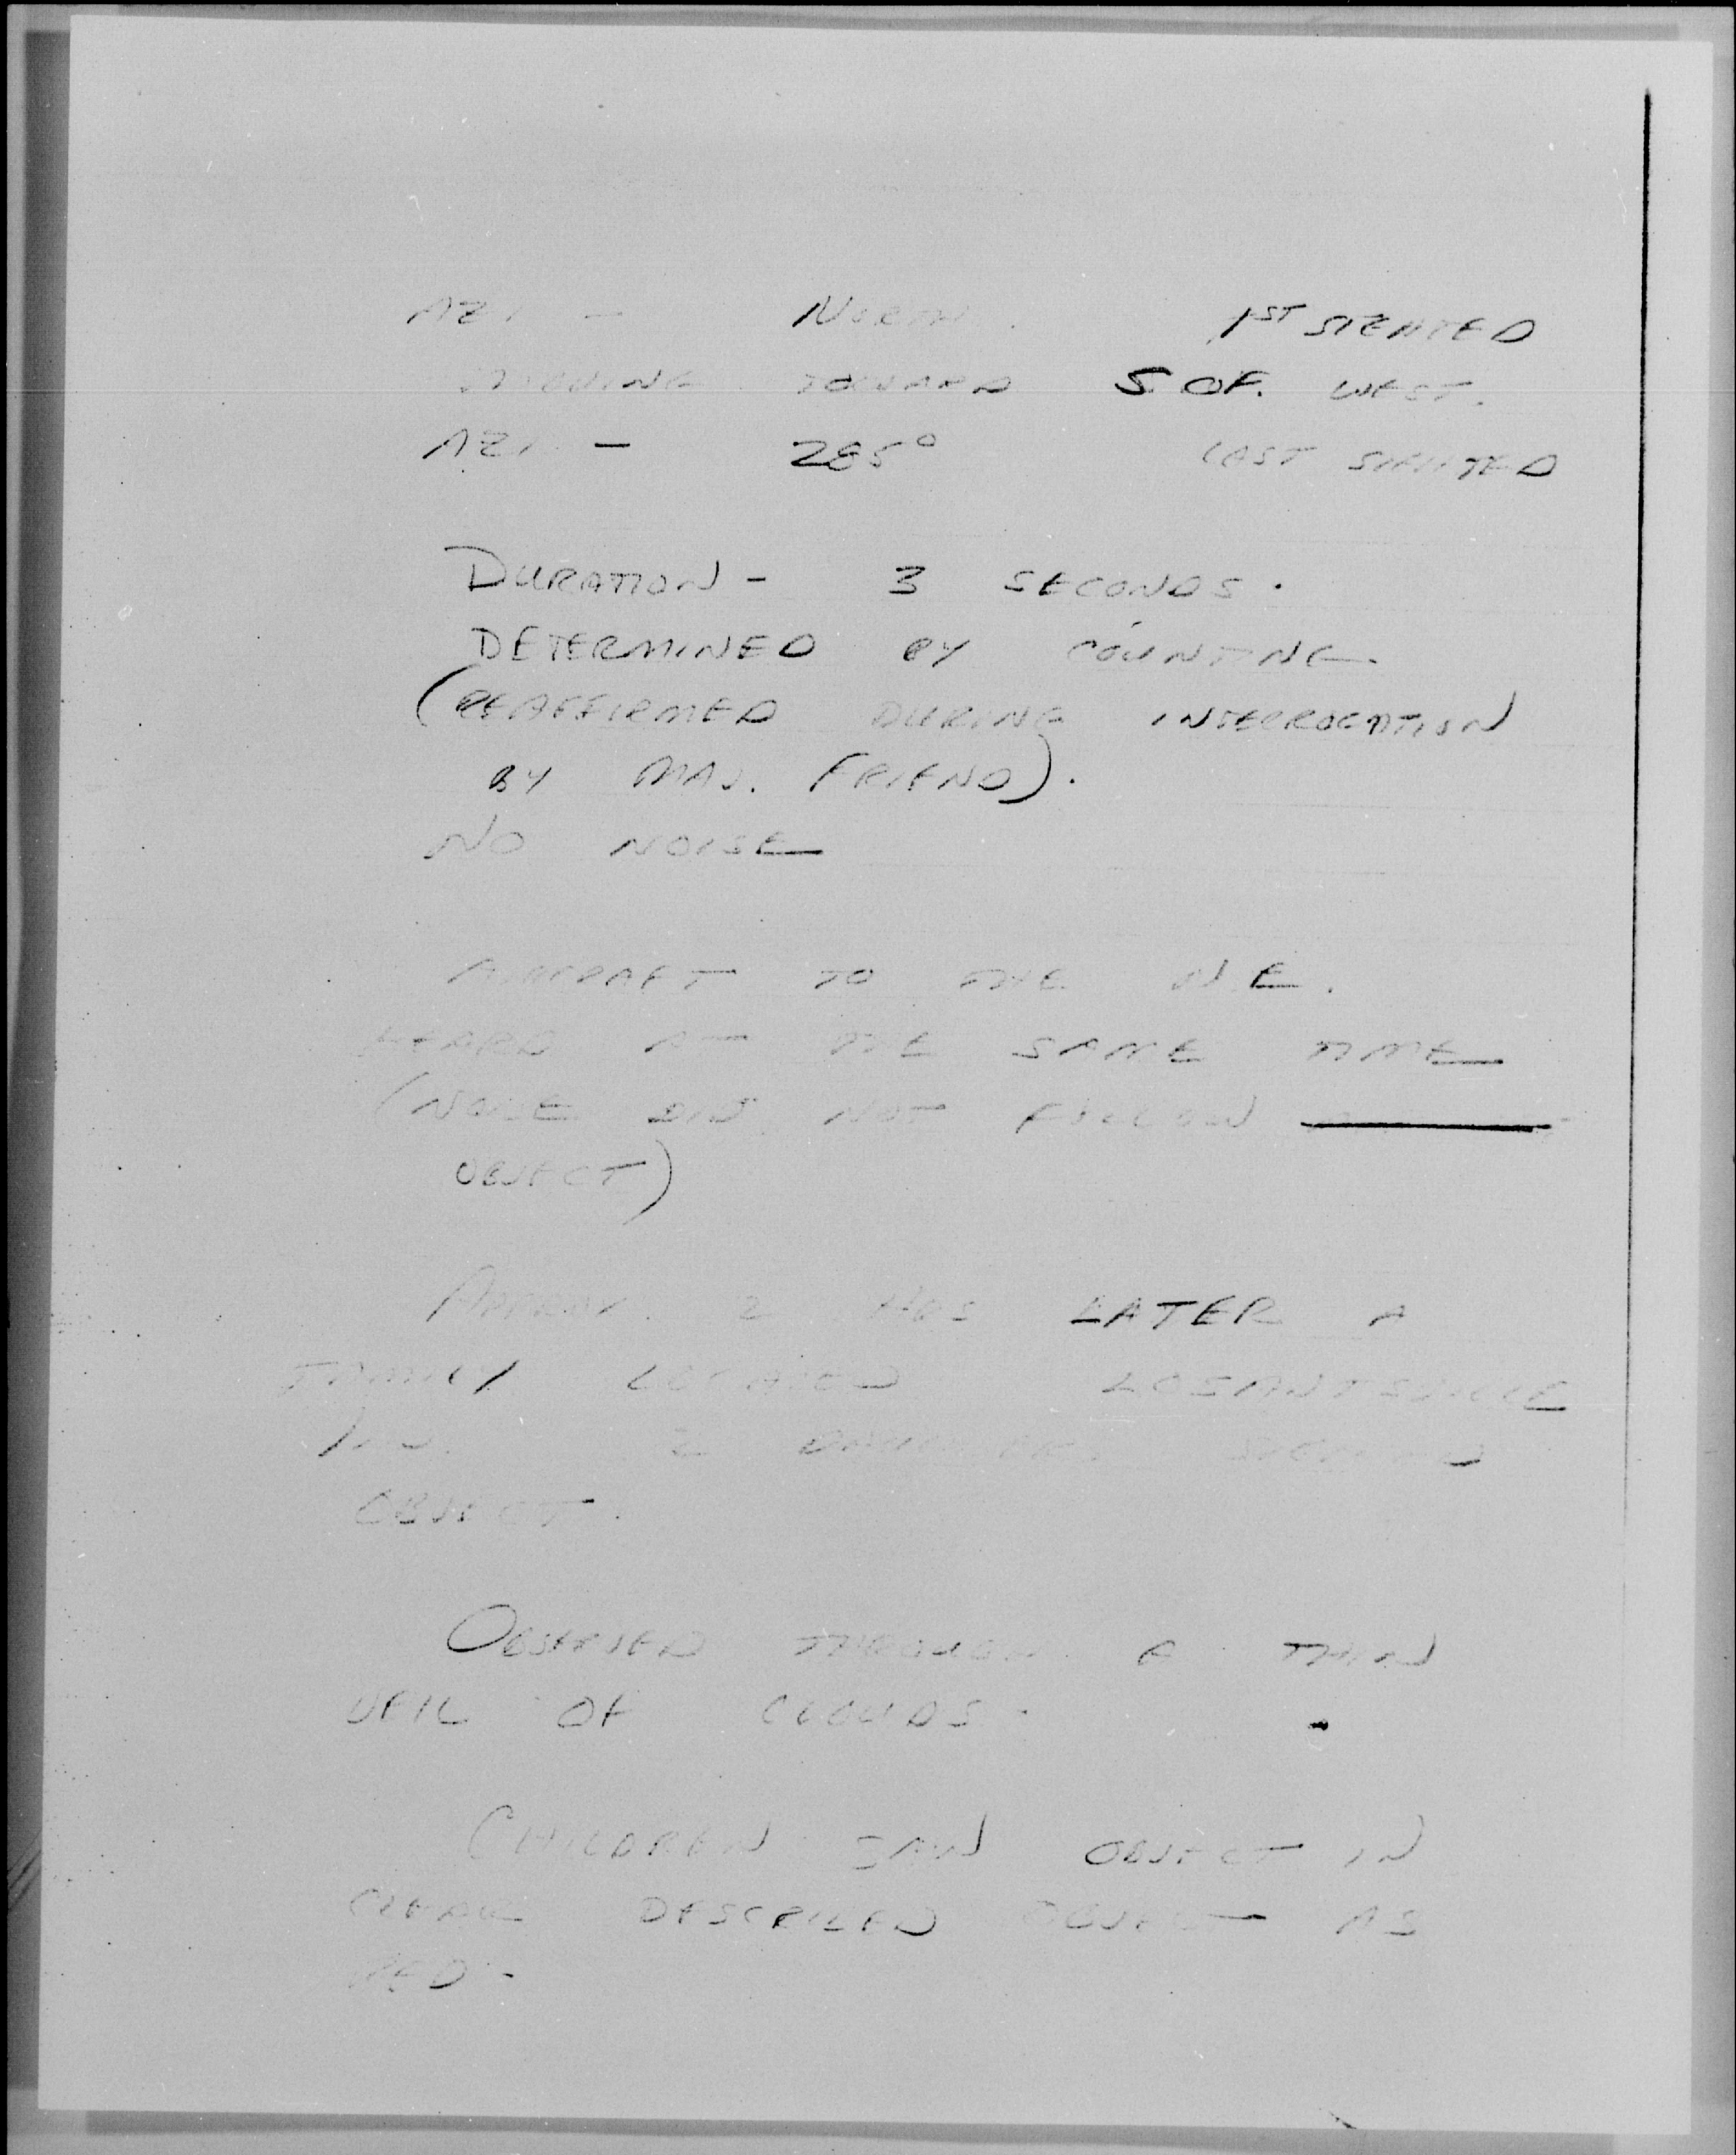 AZI - NORTH 1ST SIGHTED
MOVING TOWARD S OF. WEST.
AZI - 285° LAST SIGHTED
DURATION - 3 SECONDS.
DETERMINED BY COUNTING
(REAFFIRMED DURING INTERROGATION
BY MAJ. FRIEND).
NO NOISE
AIRCRAFT TO THE N.E.
HEARD AT THE SAME TIME
(NOISE DID NOT FOLLOW
OBJECT)
APPROX. 2 HRS LATER A
FAMILY LOCATED LOSANTSVILLE
IND. 2 DAUGHTERS SIGHTED
OBJECT.
OBSERVED THROUGH A THIN
VEIL OF CLOUDS.
CHILDREN SAW OBJECT IN
CLEAR DESCRIBED OBJECT AS
RED.